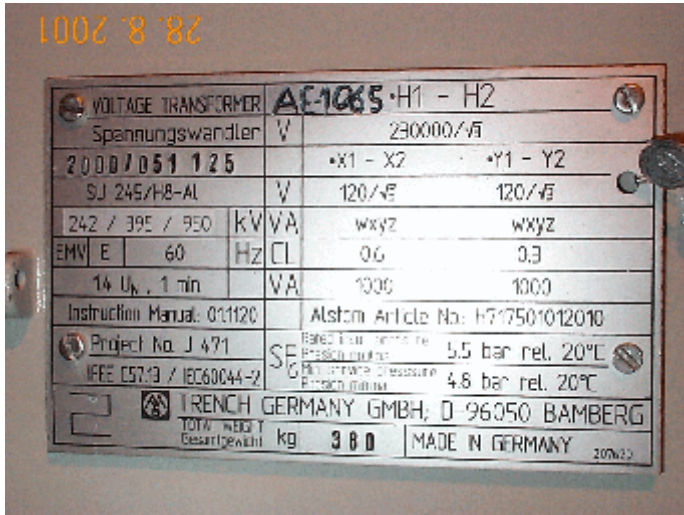 28. 8. 2001
VOLTAGE TRANSFORMER AE-1065 •H1 - H2
Spannungswandler V 230000/√3
2000/051 125 •X1 - X2 •Y1 - Y2
SU 245/H8-AL V 120/√3 120/√3
242 / 395 / 950 kV VA wxyz wxyz
EMV E 60 Hz CL 0.6 0.3
1.4 UN , 1 min VA 1000 1000
Instruction Manual: 01.1120 Alstom Article No: H717501012010
Project No. J 471 SF6 Presion 5.5 bar rel. 20°C
IEEE C57.13 / IEC60044-2 Min service pressure Presion minima 4.8 bar rel. 20°C
TRENCH GERMANY GMBH; D-96050 BAMBERG
TOTAL WEIGHT
Gesamtgewicht kg 380 MADE IN GERMANY